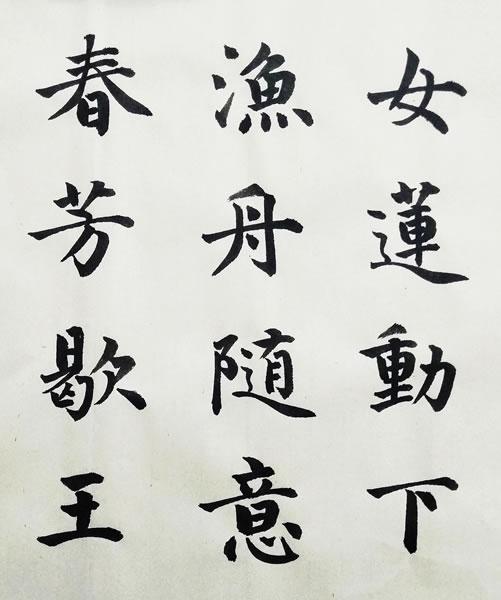 女蓮動下
漁舟随意
春芳歇王